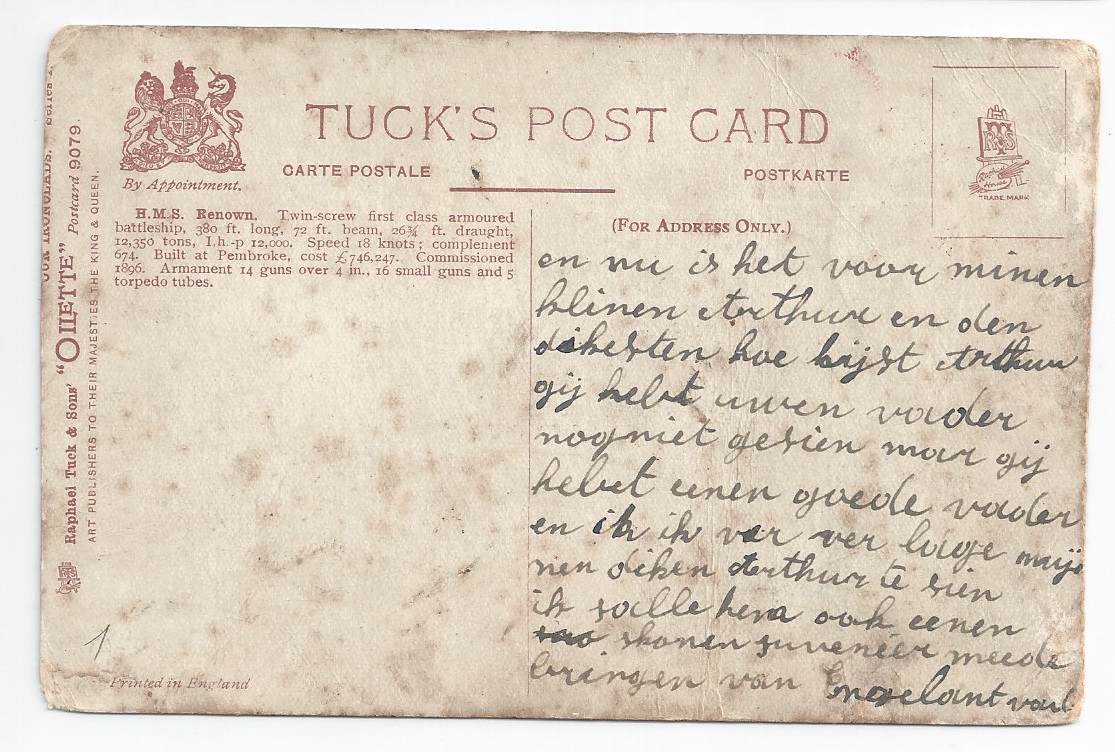 TUCK'S POST CARD
CARTE POSTALE
POSTKARTE
By Appointment.
TRADE MARK
H.M.S. Renown. Twin-screw first class armoured
battleship, 380 ft. long, 72 ft. beam, 26¾ ft. draught,
12,350 tons, I.h.-p 12,000. Speed 18 knots; complement
674. Built at Pembroke, cost £746,247. Commissioned
1896. Armament 14 guns over 4 in., 16 small guns and 5
torpedo tubes.
Raphael Tuck & Sons' "OILETTE" Postcard 9079.
ART PUBLISHERS TO THEIR MAJESTIES THE KING & QUEEN.
Printed in England
(FOR ADDRESS ONLY.)
en nu is het voor minen
klinen Arthur en den
dikesten hoe Arthur
gij hebt uwen vader
nog niet gesien mar gij
hebet eenen goede vader
en ik ik ver
nen diken Arthur te sien
ik salle hem ook eenen
skonen suveneer meede
bringen van